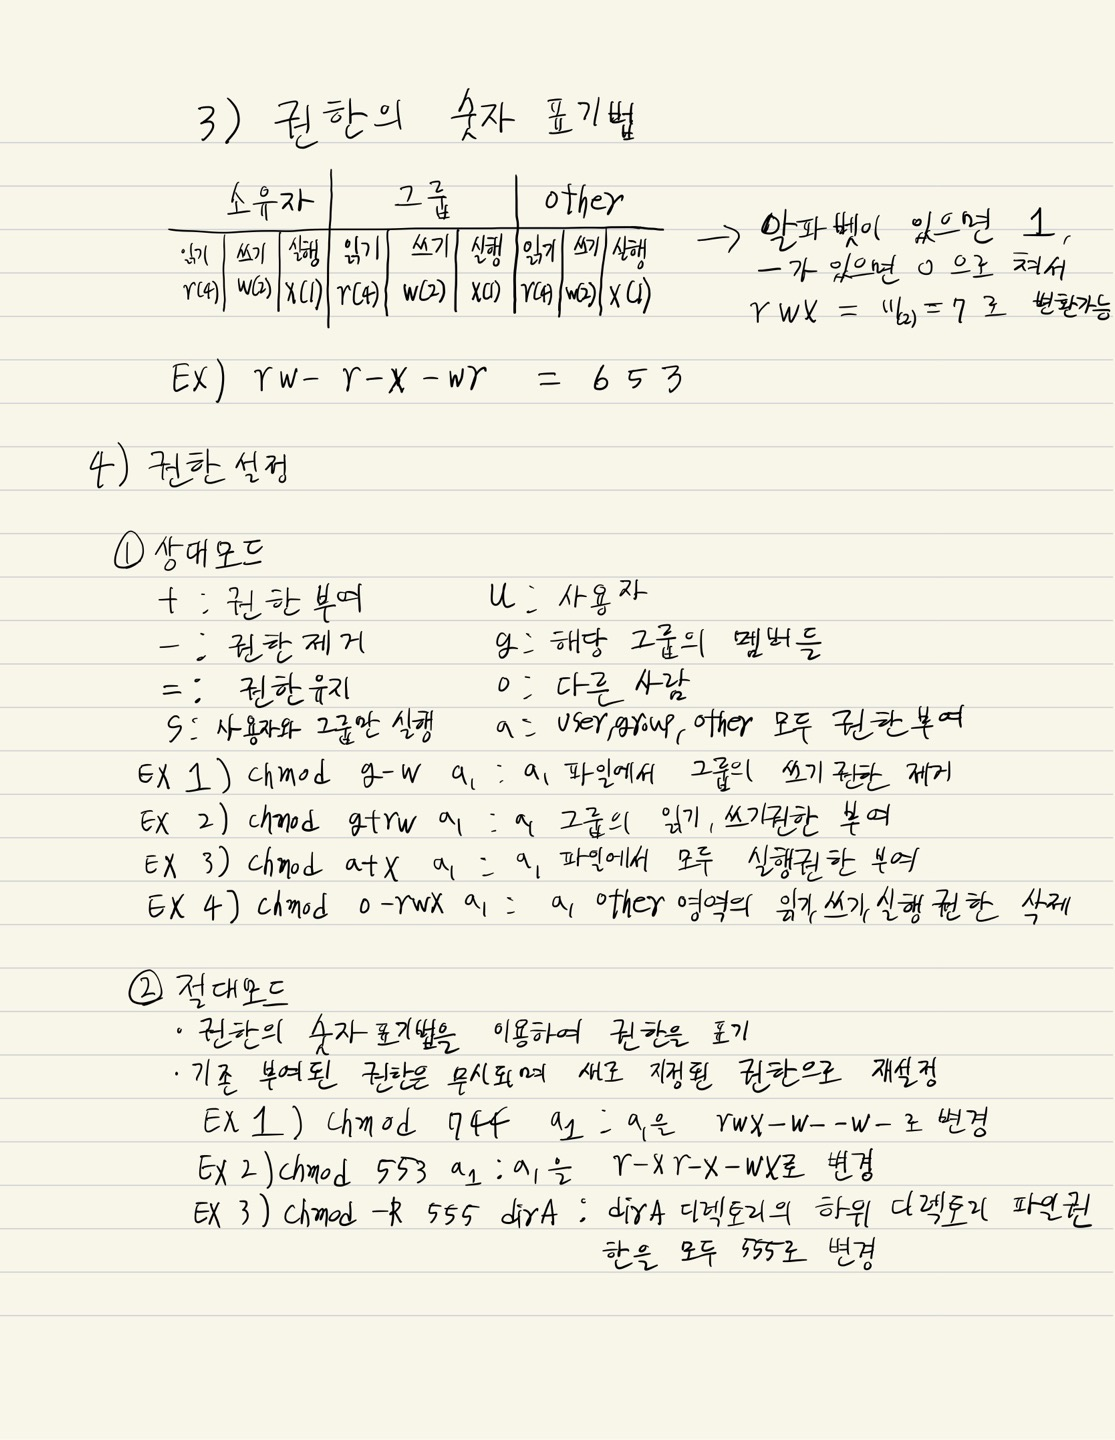 3) 권한의 숫자 표기법
소유자 그룹 other
읽기 쓰기 실행 읽기 쓰기 실행 읽기 쓰기 실행
r(4) w(2) x(1) r(4) w(2) x(1) r(4) w(2) x(1)
→ 알파벳이 있으면 1,
-가 있으면 0으로 쳐서
rwx = 111(2) = 7로 변환가능
EX) rw- r-x -wr = 653
4) 권한설정
① 상대모드
+ : 권한부여 u : 사용자
- : 권한제거 g : 해당 그룹의 멤버들
= : 권한유지 o : 다른 사람
s : 사용자와 그룹만 실행 a : user, group, other 모두 권한부여
EX 1) chmod g-w a1 : a1 파일에서 그룹의 쓰기권한 제거
EX 2) chmod g+rw a1 : a1 그룹의 읽기, 쓰기권한 부여
EX 3) chmod a+x a1 : a1 파일에서 모두 실행권한 부여
EX 4) chmod o-rwx a1 : a1 other 영역의 읽기, 쓰기, 실행권한 삭제
② 절대모드
· 권한의 숫자표기법을 이용하여 권한을 표기
· 기존 부여된 권한은 무시되며 새로 지정된 권한으로 재설정
EX 1) chmod 744 a1 : a1을 rwx-w--w-로 변경
EX 2) chmod 553 a1 : a1을 r-xr-x-wx로 변경
EX 3) chmod -R 555 dirA : dirA 디렉토리의 하위 디렉토리 파일권
한을 모두 555로 변경